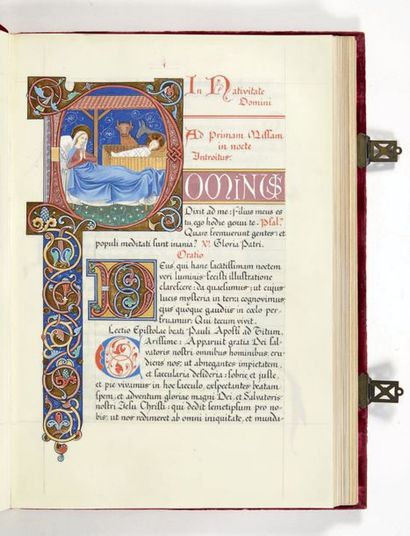 In Nativitate
Domini
Ad Primam Missam
in nocte
Introitus.
DOMINUS
Dixit ad me: filius meus es
tu, ego hodie genui te. Psal.
Quare fremuerunt gentes: et
populi meditati sunt inania? V. Gloria Patri.
Oratio
Deus, qui hanc sacatissimam noctem
veri luminis fecisti illustratione
clarescere: da quaesumus: ut cujus
lucis mysteria in terra cognovimus,
ejus quoque gaudiis in coelo per-
fruamur: Qui tecum vivit.
Lectio Epistolae beati Pauli Apostoli ad Titum.
Carissime: Apparuit gratia Dei Sal-
vatoris nostri omnibus hominibus, eru-
diens nos: ut abnegantes impietatem,
et saecularia desideria: sobrie et juste,
et pie vivamus in hoc saeculo, expectantes beatam
spem, et adventum gloriae magni Dei, et Salvatoris
nostri Jesu Christi: qui dedit semetipsum pro no-
bis: ut nos redimeret ab omni iniquitate, et munda-